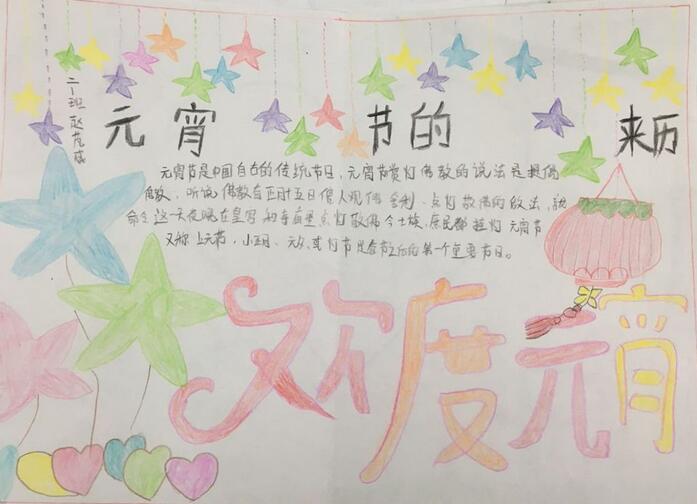 元宵节的来历
二一班 赵
元宵节是中国自古的传统节日,元宵节赏灯佛教的说法是提倡
佛教,听说佛教有正月十五日僧人观佛舍利、点灯敬佛的做法,就
命令这一天夜晚在皇宫和寺庙里点灯敬佛令士族、庶民都挂灯元宵节
又称上元节,小正月、元夕或灯节是春节后的第一个重要节日。
欢度元宵